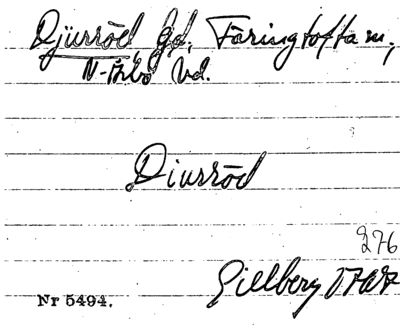 Djurröd Gd, Färingtofta sn,
N. Åsbo Hd.
Diurröd
276
Gillberg 1767
Nr 5494.